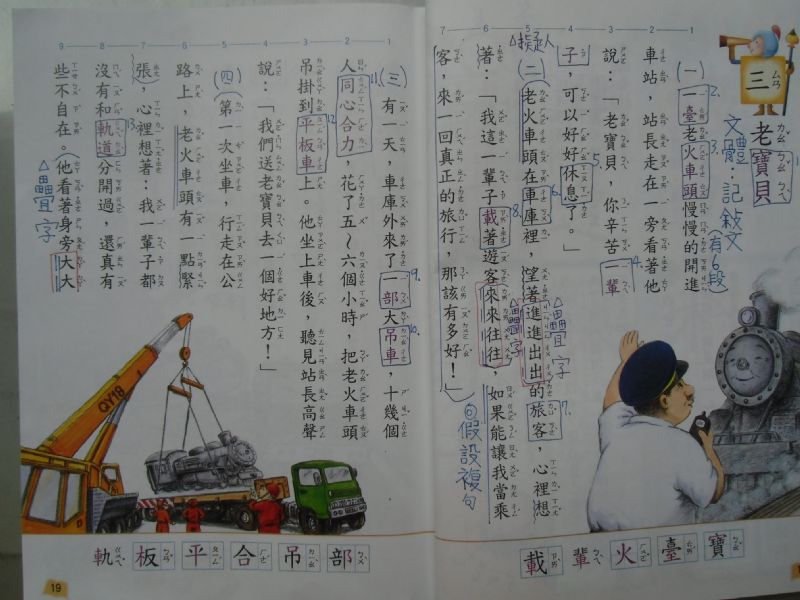 三 老寶貝
文體：記敘文(有6段)
(一) 一臺老火車頭慢慢的開進
車站，站長走在一旁看著他
說：「老寶貝，你辛苦一輩
子，可以好好休息了。」
擬人
(二) 老火車頭在車庫裡，望著進進出出的旅客，心裡想
疊字
著：「我這一輩子載著遊客來來往往，如果能讓我當乘
疊字
客，來一回真正的旅行，那該有多好！」
假設複句
寶 臺 火 輩 載
(三) 有一天，車庫外來了一部大吊車，十幾個
人同心合力，花了五～六個小時，把老火車頭
吊掛到平板車上。他坐上車後，聽見站長高聲
說：「我們送老寶貝去一個好地方！」
(四) 第一次坐車，行走在公
路上，老火車頭有一點緊
張，心裡想著：我一輩子都
沒有和軌道分開過，還真有
些不自在。他看著身旁大大
疊字
QY18
部 吊 合 平 板 軌
19